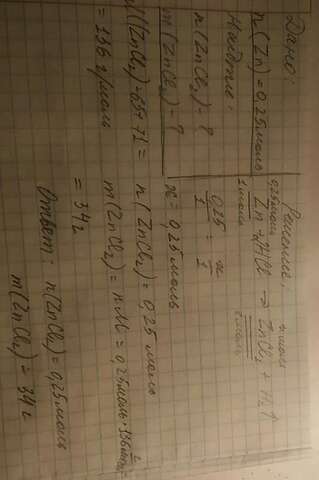 Дано:
n(Zn)=0,25моль
Найти:
n(ZnCl₂)-?
m(ZnCl₂)-?
M(ZnCl₂)=65+71=
=136 г/моль
Решение
0,25моль x моль
Zn+2HCl → ZnCl₂ + H₂↑
1моль 1моль
0,25/1 = x/1
x = 0,25 моль
n(ZnCl₂)=0,25 моль
m(ZnCl₂)= nM = 0,25моль·136г/моль=
= 34г
Ответ: n(ZnCl₂)=0,25моль
m(ZnCl₂) = 34 г